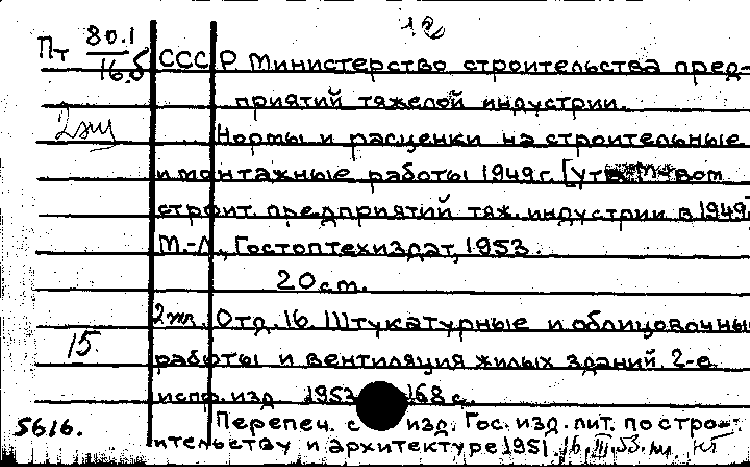 Пт 80.1
16.б
СССР Министерство строительства пред-
приятий тяжелой индустрии.
2 экз
Нормы и расценки на строительные
и монтажные работы 1949 г. [утв. М-вом
строит. предприятий тяж. индустрии в 1949]
М.-Л., Гостоптехиздат, 1953.
20 см.
2 экз. Отд. 16. Штукатурные и облицовочные
15
работы и вентиляция жилых зданий. 2-е
испр. изд 1953 168 с.
Перепеч. с изд. Гос. изд. лит. по строи-
5616.
ительству и архитектуре 1951. 16.III.53.